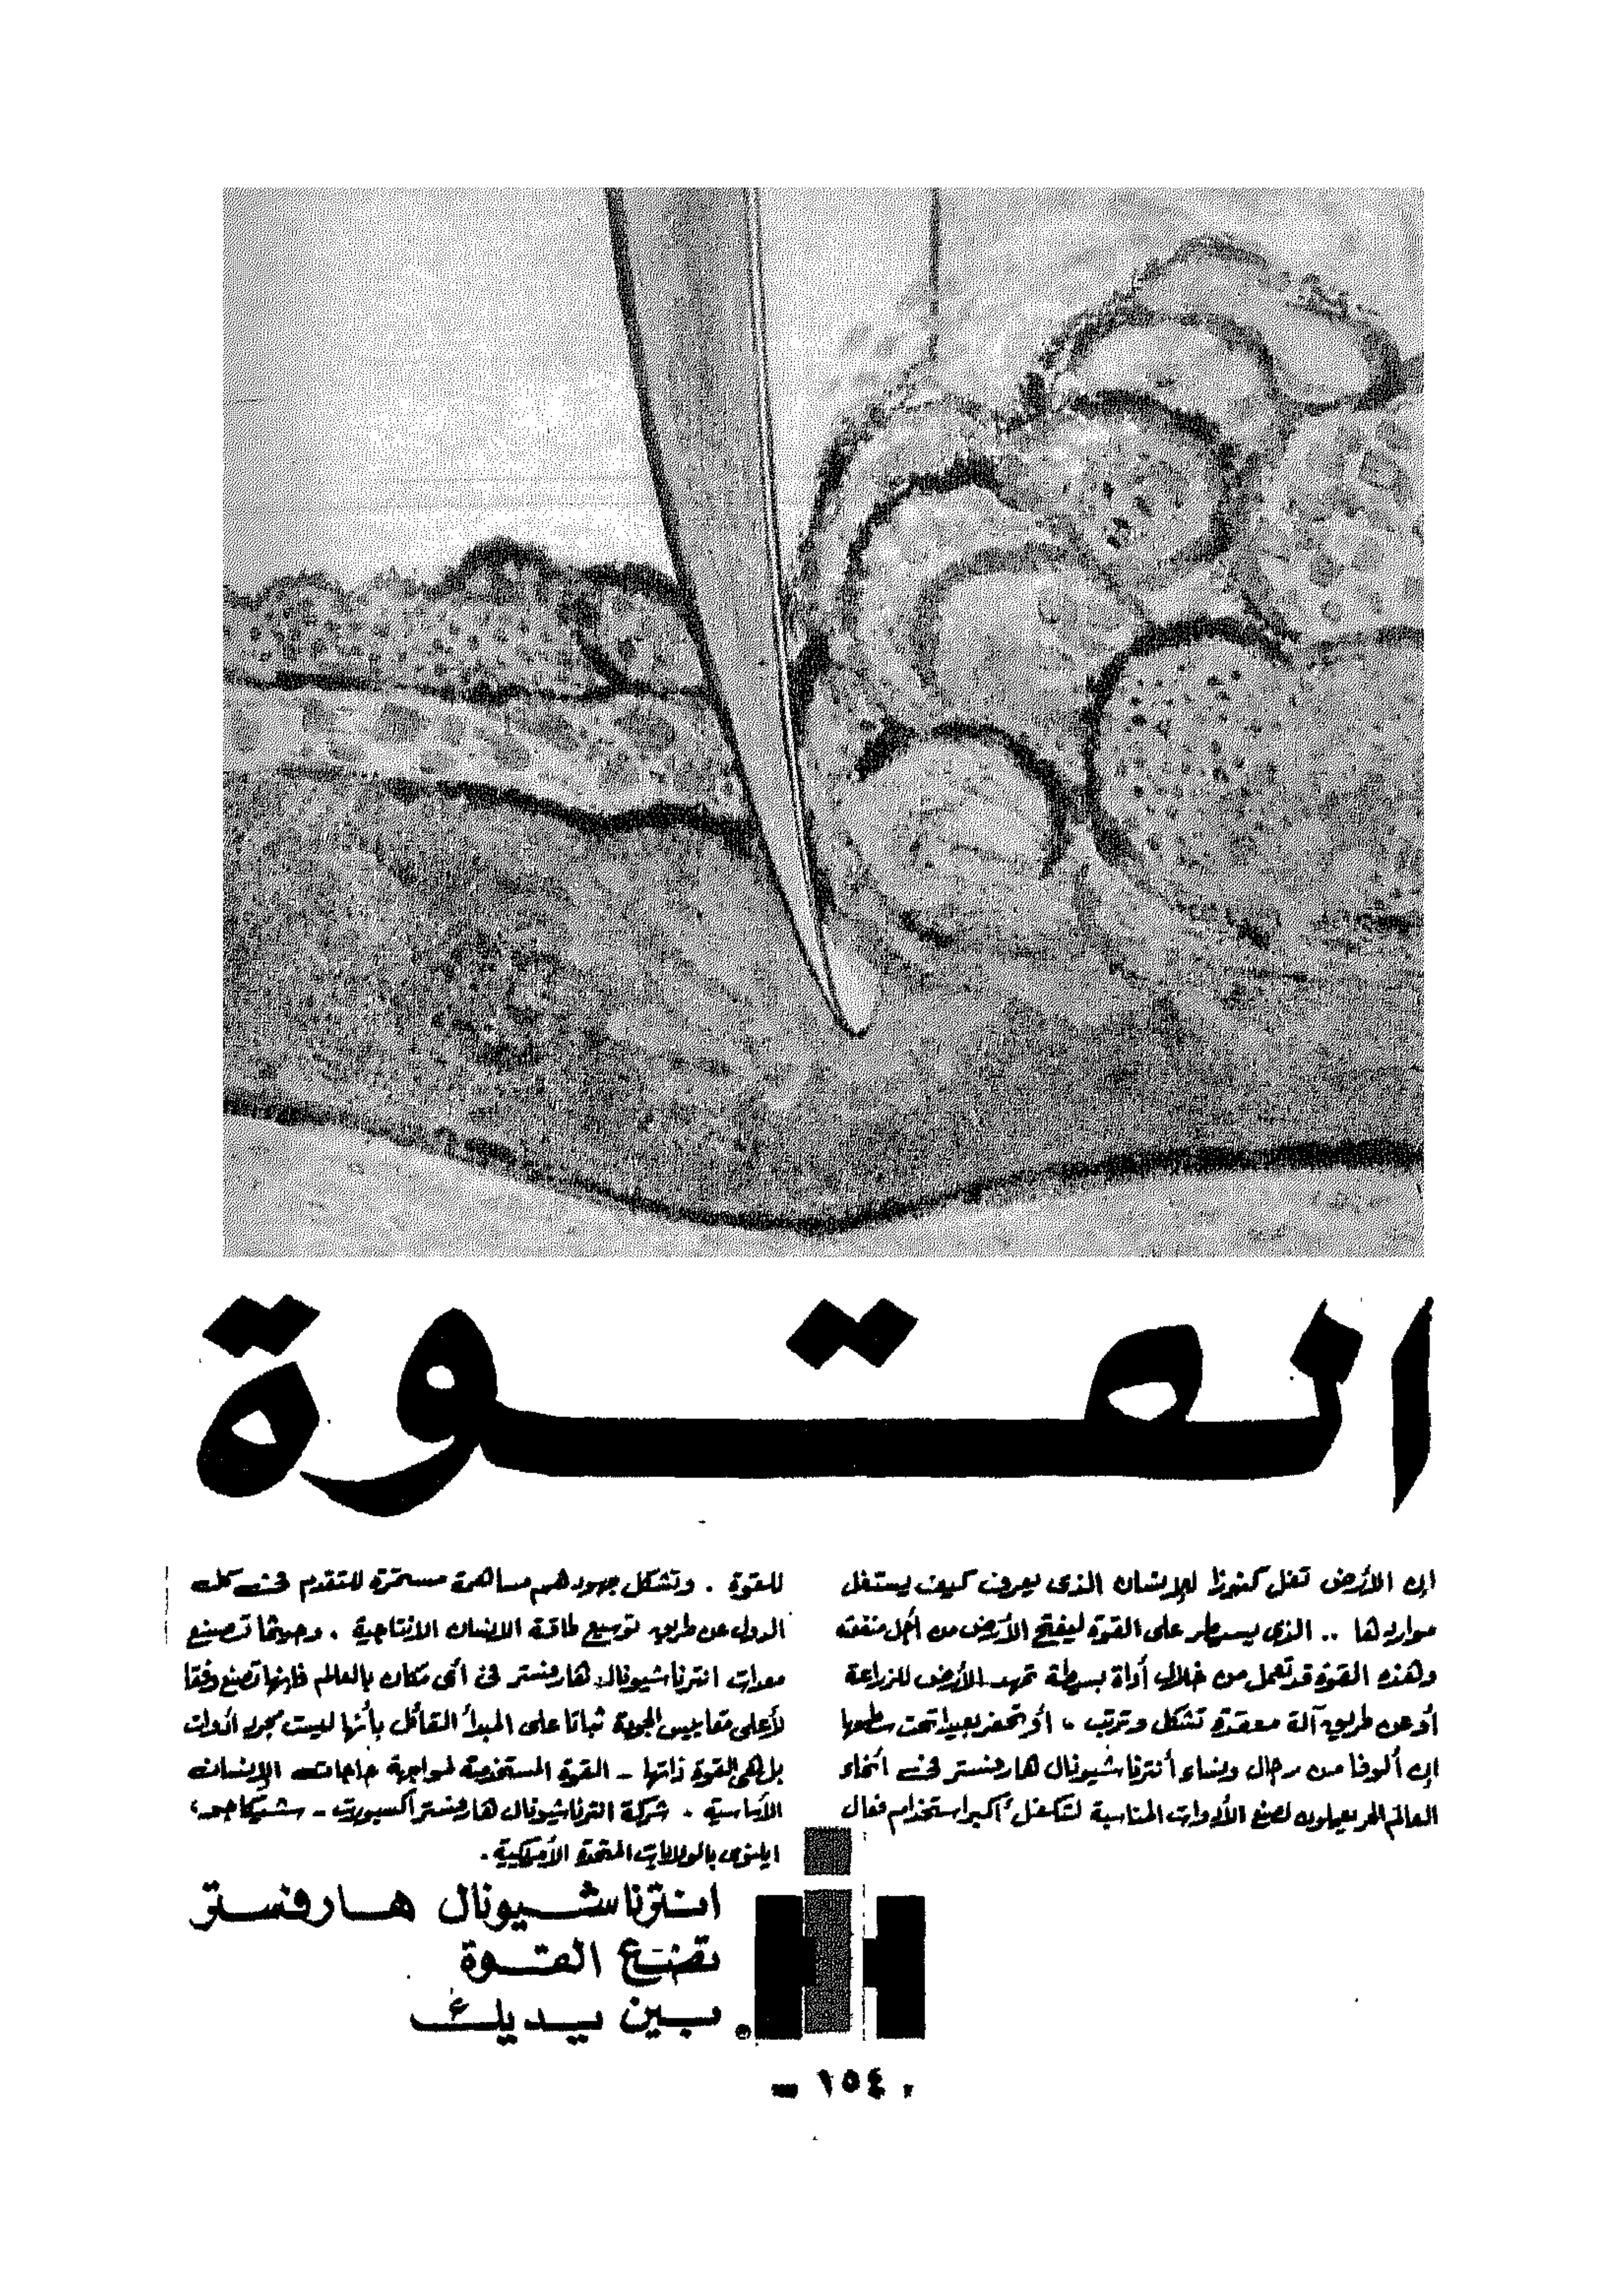 القوة
إن الأرض تغل كنوزا للإنسان الذى يعرف كيف يستغل
مواردها .. الذى يسيطر على القوة ليفتح الأرض من أجل منفعته
وهذه القوة قد تعمل من خلال أداة بسيطة تمهد الأرض للزراعة
أو عن طريق آلة معقدة تشكل وترتب . أو تحفر بعيدا تحت سطحها
إن ألوفا من رجال ونساء أنترناشيونال هارفستر فى أنحاء
العالم الحر يعملون لصنع الأدوات المناسبة لتكفل أكبر استخدام فعال
للقوة . وتشكل جهودهم مساهمة مستمرة للتقدم فى كل
الدول عن طريق توسيع طاقة الانسان الانتاجية . وحيثما تصنيع
معدات انترناشيونال هارفستر فى أى مكان بالعالم فإنها تصنع وفقا
لأعلى مقاييس الجودة ثباتا على المبدأ القائل بأنها ليست مجرد أدوات
بل هى القوة ذاتها - القوة المستخدمة لمواجهة حاجات الإنسان
الأساسية . شركة انترناشيونال هارفستر أكسبورت - شيكاجو،
ايلينوى بالولايات المتحدة الأمريكية .
انترناشيونال هارفستر
تضع القوة
بين يديك
١٥٤ -